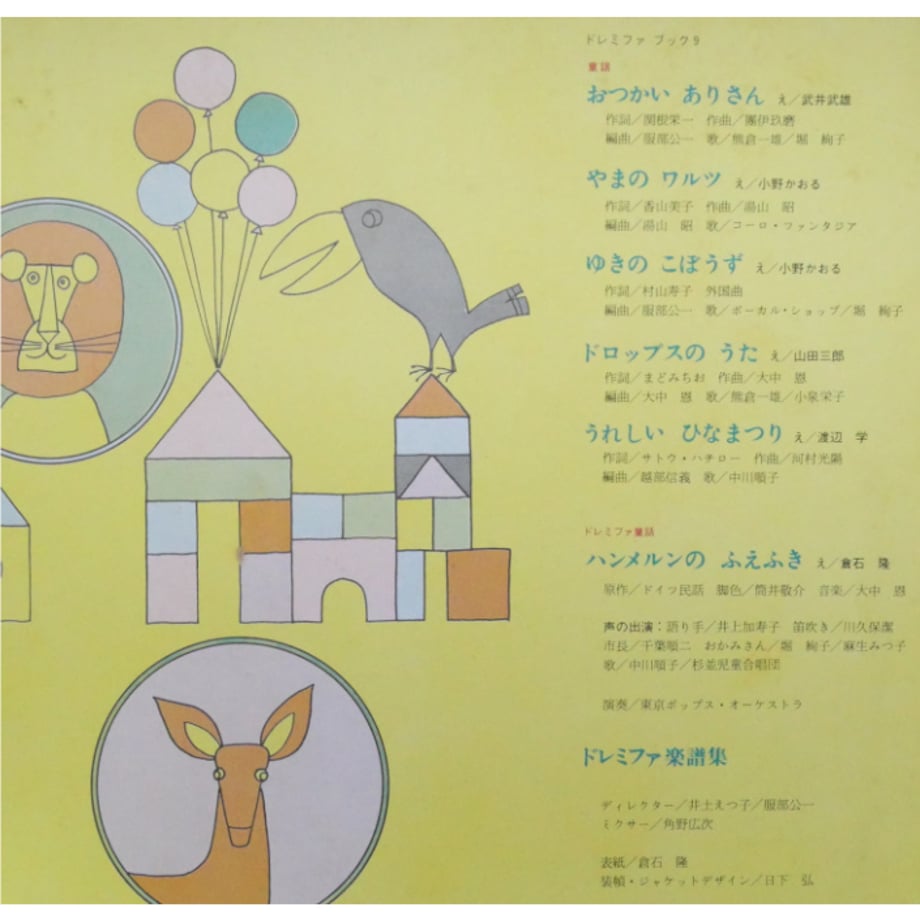 ドレミファ ブック9
童謡
おつかい ありさん え／武井武雄
作詞／関根栄一 作曲／團伊玖磨
編曲／服部公一 歌／熊倉一雄／堀 絢子
やまの ワルツ え／小野かおる
作詞／香山美子 作曲／湯山 昭
編曲／湯山 昭 歌／コーロ・ファンタジア
ゆきの こぼうず え／小野かおる
作詞／村山寿子 外国曲
編曲／服部公一 歌／ボーカル・ショップ／堀 絢子
ドロップスの うた え／山田三郎
作詞／まどみちお 作曲／大中 恩
編曲／大中 恩 歌／熊倉一雄／小泉栄子
うれしい ひなまつり え／渡辺 学
作詞／サトウ・ハチロー 作曲／河村光陽
編曲／越部信義 歌／中川順子
ドレミファ童話
ハンメルンの ふえふき え／倉石 隆
原作／ドイツ民話 脚色／筒井敬介 音楽／大中 恩
声の出演：語り手／井上加寿子 笛吹き／川久保潔
市長／千葉順二 おかみさん／堀 絢子／麻生みつ子
歌／中川順子／杉並児童合唱団
演奏／東京ポップス・オーケストラ
ドレミファ楽譜集
ディレクター／井土えつ子／服部公一
ミクサー／角野広次
表紙／倉石 隆
装幀・ジャケットデザイン／日下 弘